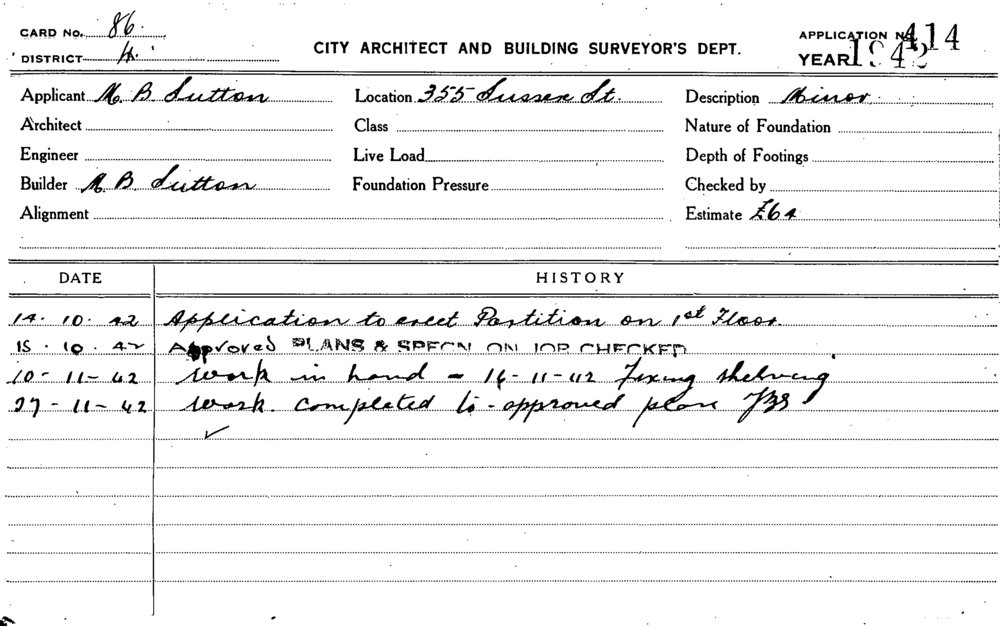 CARD No. 86.
DISTRICT 4.
CITY ARCHITECT AND BUILDING SURVEYOR'S DEPT.
APPLICATION No. 414
YEAR 1942
Applicant M. B. Sutton Location 355 Sussex St. Description Minor
Architect Class Nature of Foundation
Engineer Live Load Depth of Footings
Builder M. B. Sutton Foundation Pressure Checked by
Alignment Estimate £64
DATE HISTORY
14. 10. 42 Application to erect Partition on 1st Floor.
15. 10. 42 Approved PLANS & SPECN ON JOB CHECKED
10-11-42 Work in hand - 16-11-42 Fixing shelving
27-11-42 Work completed to approved plan